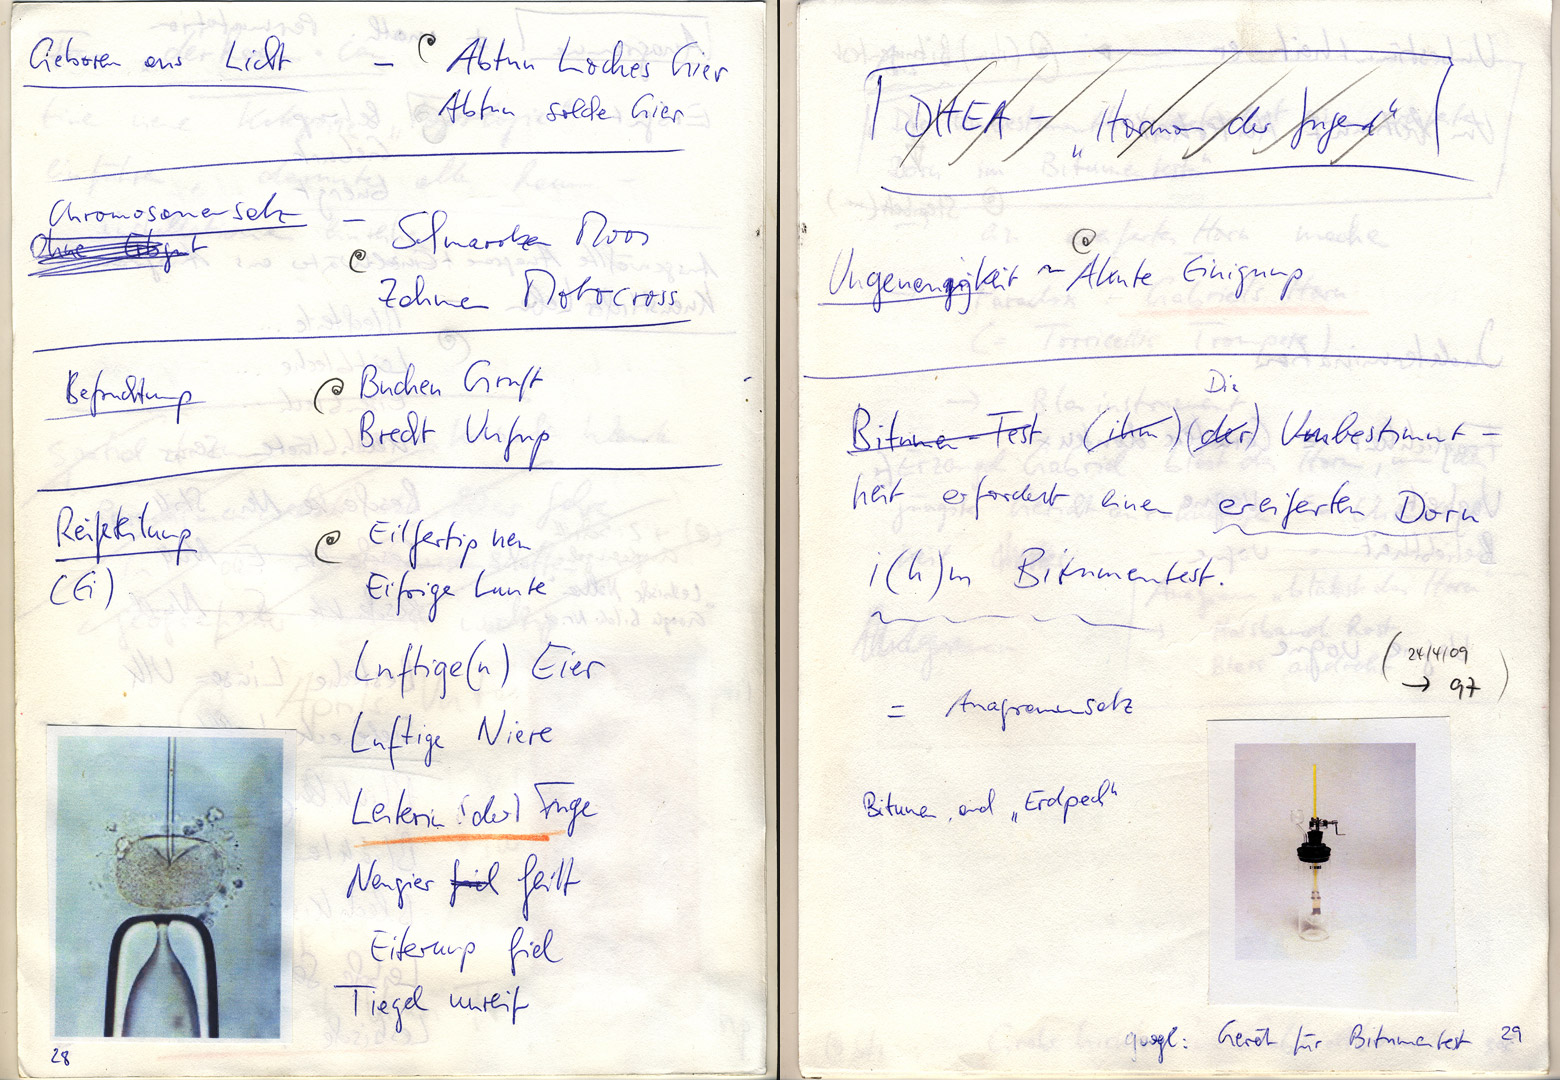 Geboren aus Licht – @ Abtun Loches Gier
Abtun solche Gier
Chromosomensatz –
Ohne Erbgut
Schmarotzer Moos
@ Zahmen Motocross
Befruchtung @ Buchen Gruft
Brecht Unfug
Reifeteilung @ Eilfertig nen
(Ei) Eifrige Lunte
Luftige(n) Eier
Luftige Niere
Leiterin (der) Fuge
Neugier fiel geilt
Eiterung fiel
Tiegel unreif
28
DHEA – „Hormon der Jugend"
@
Ungenauigkeit ~ Akute Einigung
Die
Bitumen-Test (ihm) (der) Unbestimmt-
heit erfordert einen ereiferten Dorn
i(h)m Bitumentest.
(24/4/09
→ 97)
= Anagrammsatz
Bitumen, auch „Erdpech"
googl: Gerät für Bitumentest 29